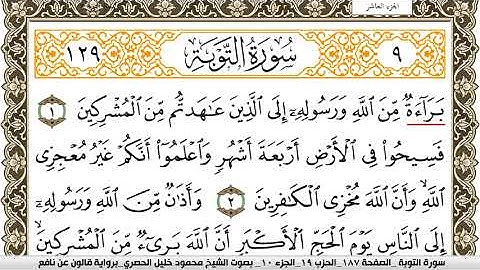 الجزء العاشر
٩ سُورَةُ التَّوْبَةِ ١٢٩
بَرَآءَةٌ مِّنَ ٱللَّهِ وَرَسُولِهِۦٓ إِلَى ٱلَّذِينَ عَٰهَدتُّم مِّنَ ٱلْمُشْرِكِينَ ١
فَسِيحُوا۟ فِى ٱلْأَرْضِ أَرْبَعَةَ أَشْهُرٍ وَٱعْلَمُوٓا۟ أَنَّكُمْ غَيْرُ مُعْجِزِى
ٱللَّهِ وَأَنَّ ٱللَّهَ مُخْزِى ٱلْكَٰفِرِينَ ٢ وَأَذَٰنٌ مِّنَ ٱللَّهِ وَرَسُولِهِۦٓ
إِلَى ٱلنَّاسِ يَوْمَ ٱلْحَجِّ ٱلْأَكْبَرِ أَنَّ ٱللَّهَ بَرِىٓءٌ مِّنَ ٱلْمُشْرِكِينَ
سورة التوبة _الصفحة ١٨٧_الحزب ١٩_الجزء ١٠_ بصوت الشيخ محمود خليل الحصري_برواية قالون عن نافع